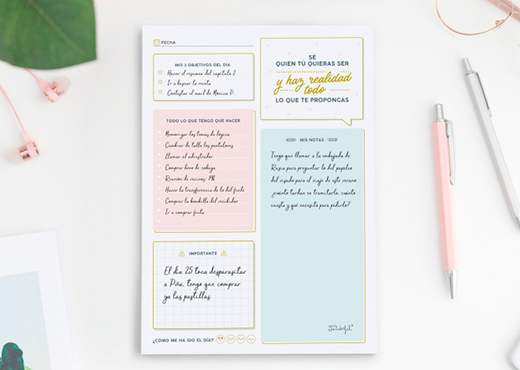 FECHA
MIS 3 OBJETIVOS DEL DÍA
Hacer el resumen del capítulo 2
Ir a buscar la moto
Contestar el mail de Mónica P.
SÉ
QUIEN TÚ QUIERAS SER
y haz realidad
todo
LO QUE TE PROPONGAS
TODO LO QUE TENGO QUE HACER
Memorizar los temas de lógica
Cambiar de talla los pantalones
Llamar al adiestrador
Comprar libro de cocina
Reunión de vecinos:
Hacer la transferencia de lo del finde
Comprar la bombilla del recibidor
Ir a comprar fruta
MIS NOTAS
Tengo que llamar a la embajada de
Rusia para preguntar lo del papeleo
del visado para el viaje de este verano
¿cuánto tardan en tramitarlo, cuánto
cuesta y qué necesito para pedirlo?
IMPORTANTE
El día 25 toca desparasitar
a Piña, tengo que comprar
ya las pastillas
¿CÓMO ME HA IDO EL DÍA?
Mr. Wonderful*